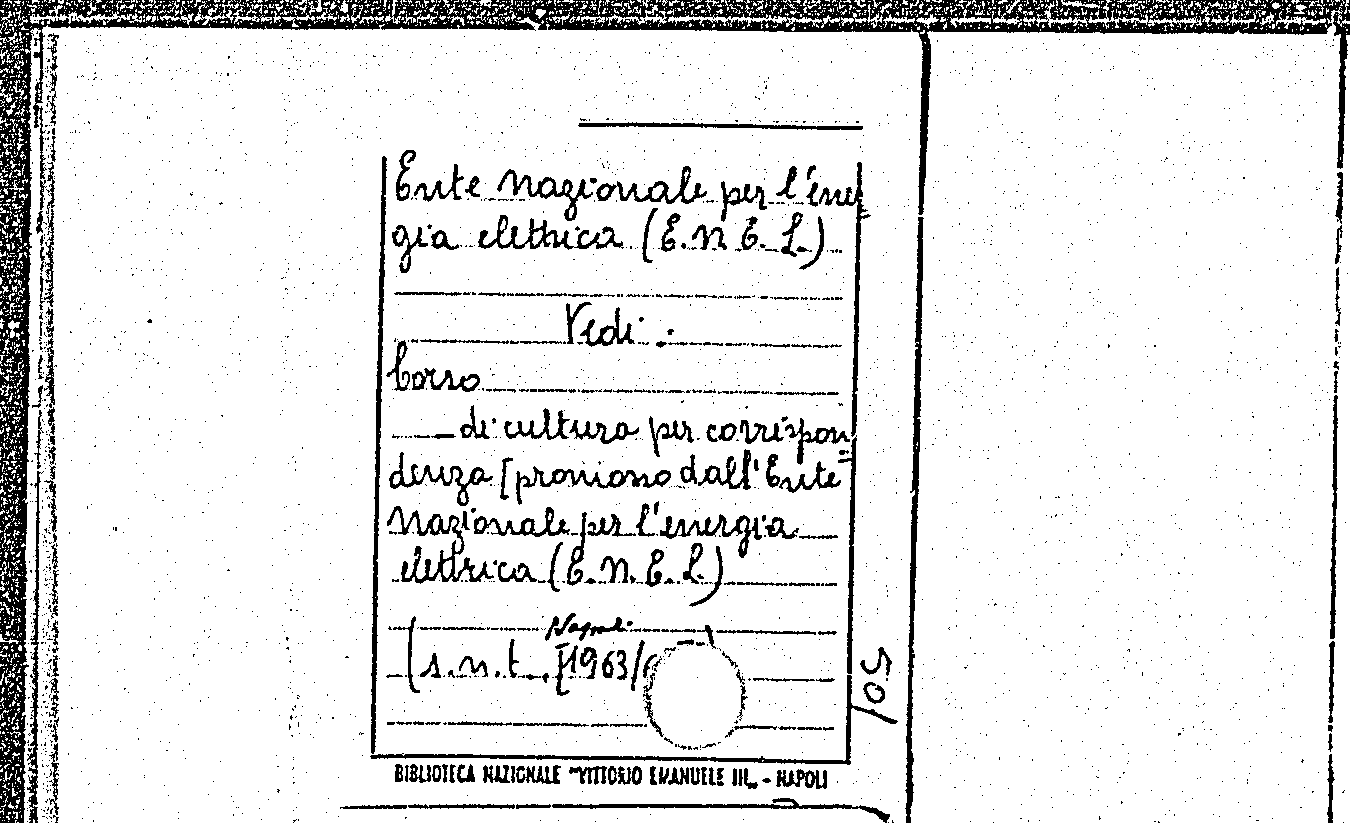 Ente Nazionale per l'ener=
gia elettrica (E.N.E.L.)
Vedi:
Corso
di cultura per corrispon=
denza [promosso dall'Ente
Nazionale per l'energia
elettrica (E.N.E.L.)
Napoli
(s.n.t. [1963/
501
BIBLIOTECA NAZIONALE "VITTORIO EMANUELE III„ - NAPOLI